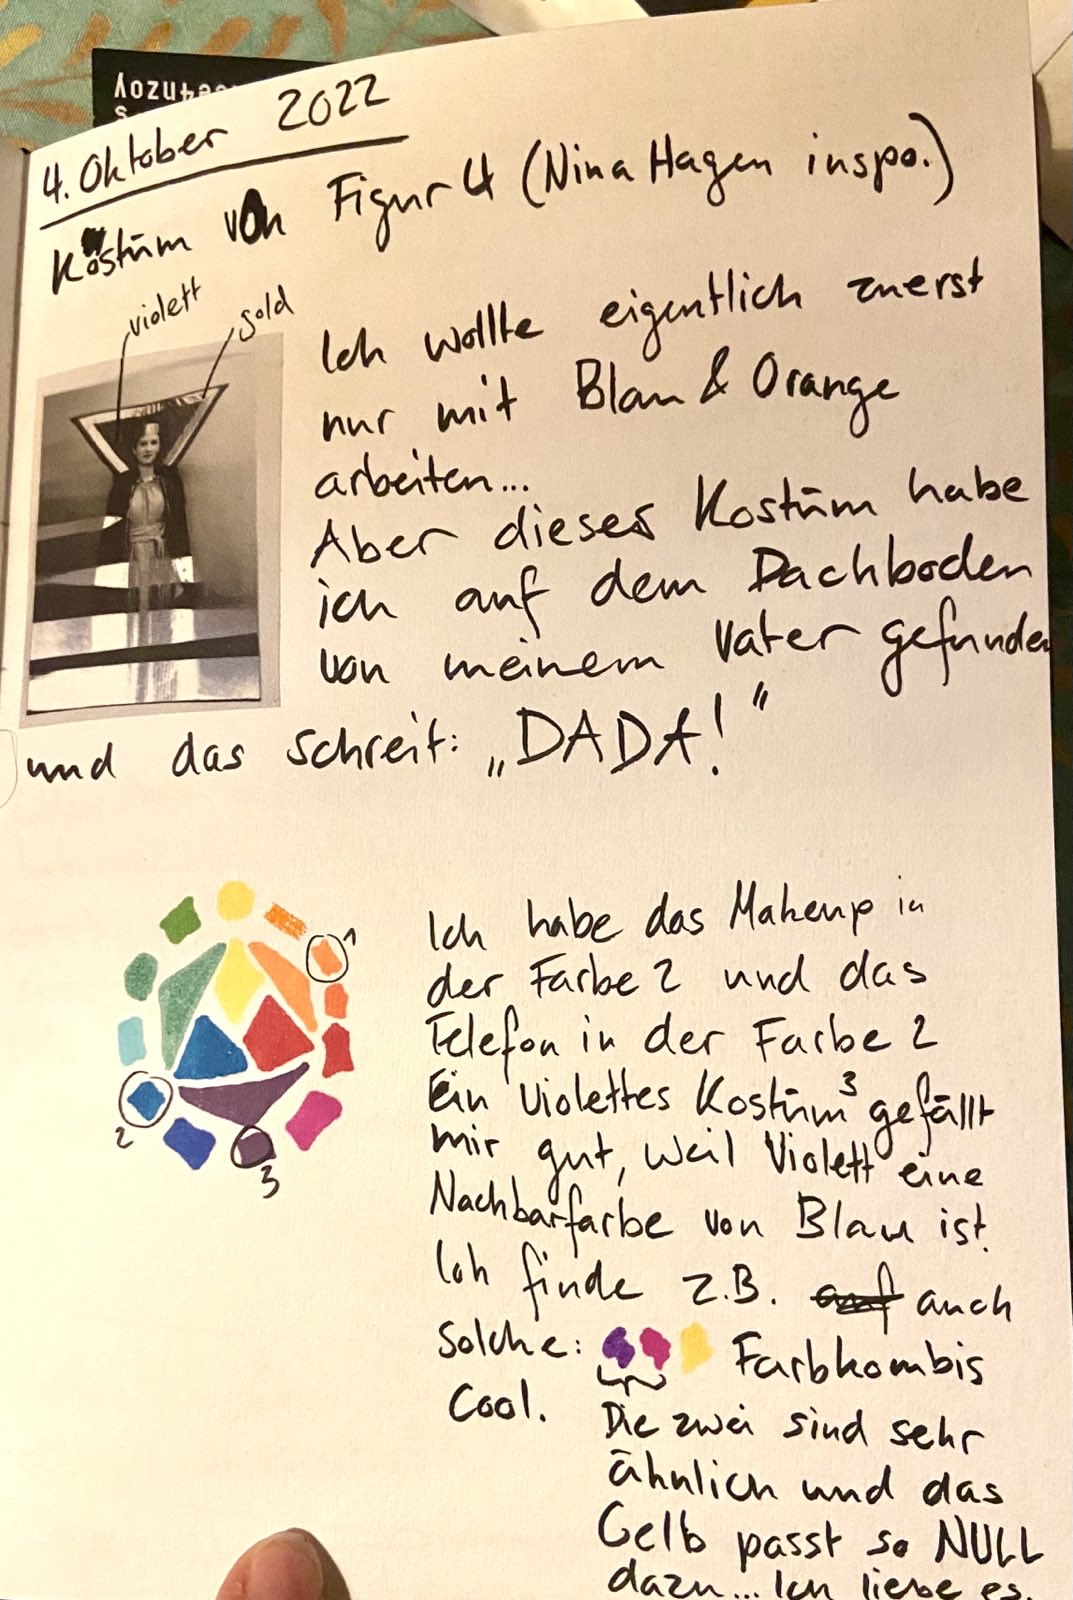 4. Oktober 2022
Kostüm von Figur 4 (Nina Hagen inspo.)
violett
gold
Ich wollte eigentlich zuerst
nur mit Blau & Orange
arbeiten...
Aber dieses Kostüm habe
ich auf dem Dachboden
von meinem Vater gefunden
und das schreit: „DADA!“
Ich habe das Makeup in
der Farbe 2 und das
Telefon in der Farbe 2
Ein violettes Kostüm³ gefällt
mir gut, weil Violett eine
Nachbarfarbe von Blau ist.
Ich finde z.B. auch
solche: Farbkombis
cool.
Die zwei sind sehr
ähnlich und das
Gelb passt so NULL
dazu... Ich liebe es.
1
2
3